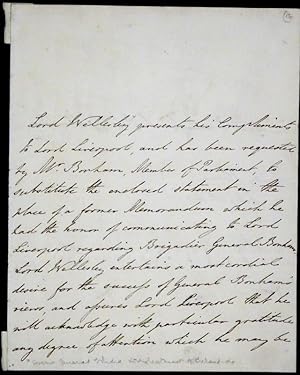 Lord Wellesley presents his Compliments
to Lord Liverpool, and has been requested
by Mr. Bonham, Member of Parliament, to
substitute the enclosed statement in the
place of a former Memorandum which he
had the honor of communicating to Lord
Liverpool regarding Brigadier General Bonham.
Lord Wellesley entertains a most cordial
desire for the success of General Bonham's
views, and assures Lord Liverpool that he
will acknowledge with particular gratitude
any degree of attention which he may be
General India